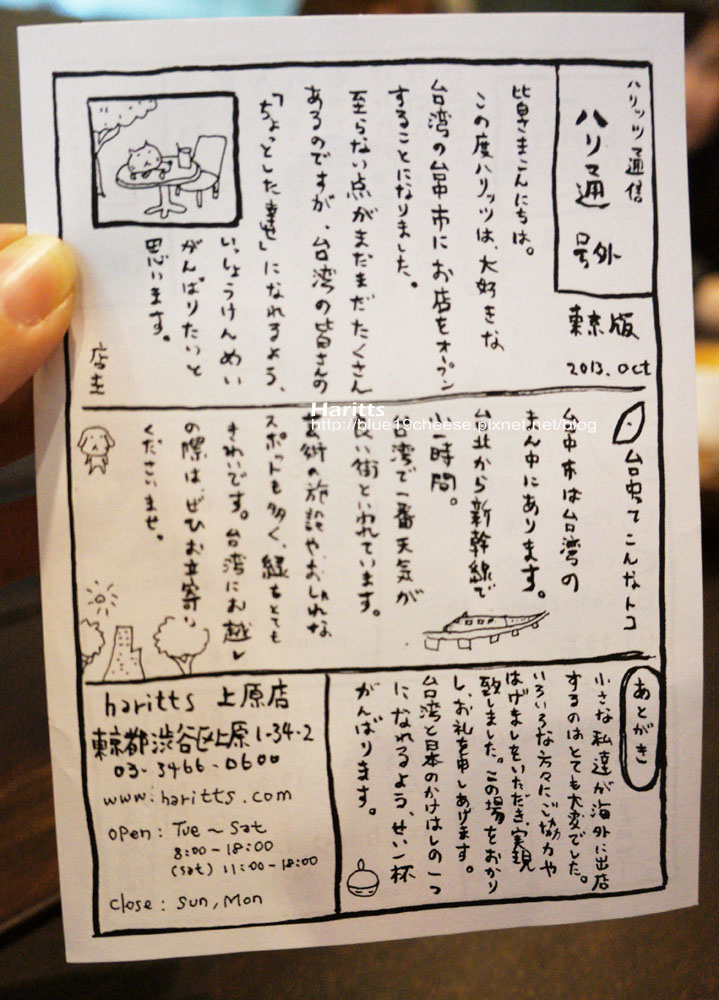 ハリッツ通信
ハリ通 号外
東京版
2013. Oct
皆さまこんにちは。
この度ハリッツは、大好きな
台湾の台中市にお店をオープン
することになりました。
至らない点がまだまだたくさん
あるのですが、台湾の皆さんの
「ちょっとした幸せ」になれるよう、
いっしょうけんめい
がんばりたいと
思います。
店主
Haritts
http://blue19cheese.pixnet.net/blog
台中ってこんなトコ
台中市は台湾の
まん中にあります。
台北から新幹線で
小一時間。
台湾で一番天気が
良い街といわれています。
芸術の施設やおしゃれな
スポットも多く、緑もとても
きれいです。台湾にお越し
の際は、ぜひお立寄り
くださいませ。
あとがき
小さな私達が海外に出店
するのはとても大変でした。
いろいろな方々にご協力や
はげましをいただき、実現
致しました。この場をおかり
し、お礼を申しあげます。
台湾と日本のかけはしの一つ
になれるよう、せい一杯
がんばります。
haritts 上原店
東京都渋谷区上原1-34-2
03-3466-0600
www.haritts.com
open: Tue ~ Sat
8:00-18:00
(sat) 11:00-18:00
close: Sun, Mon